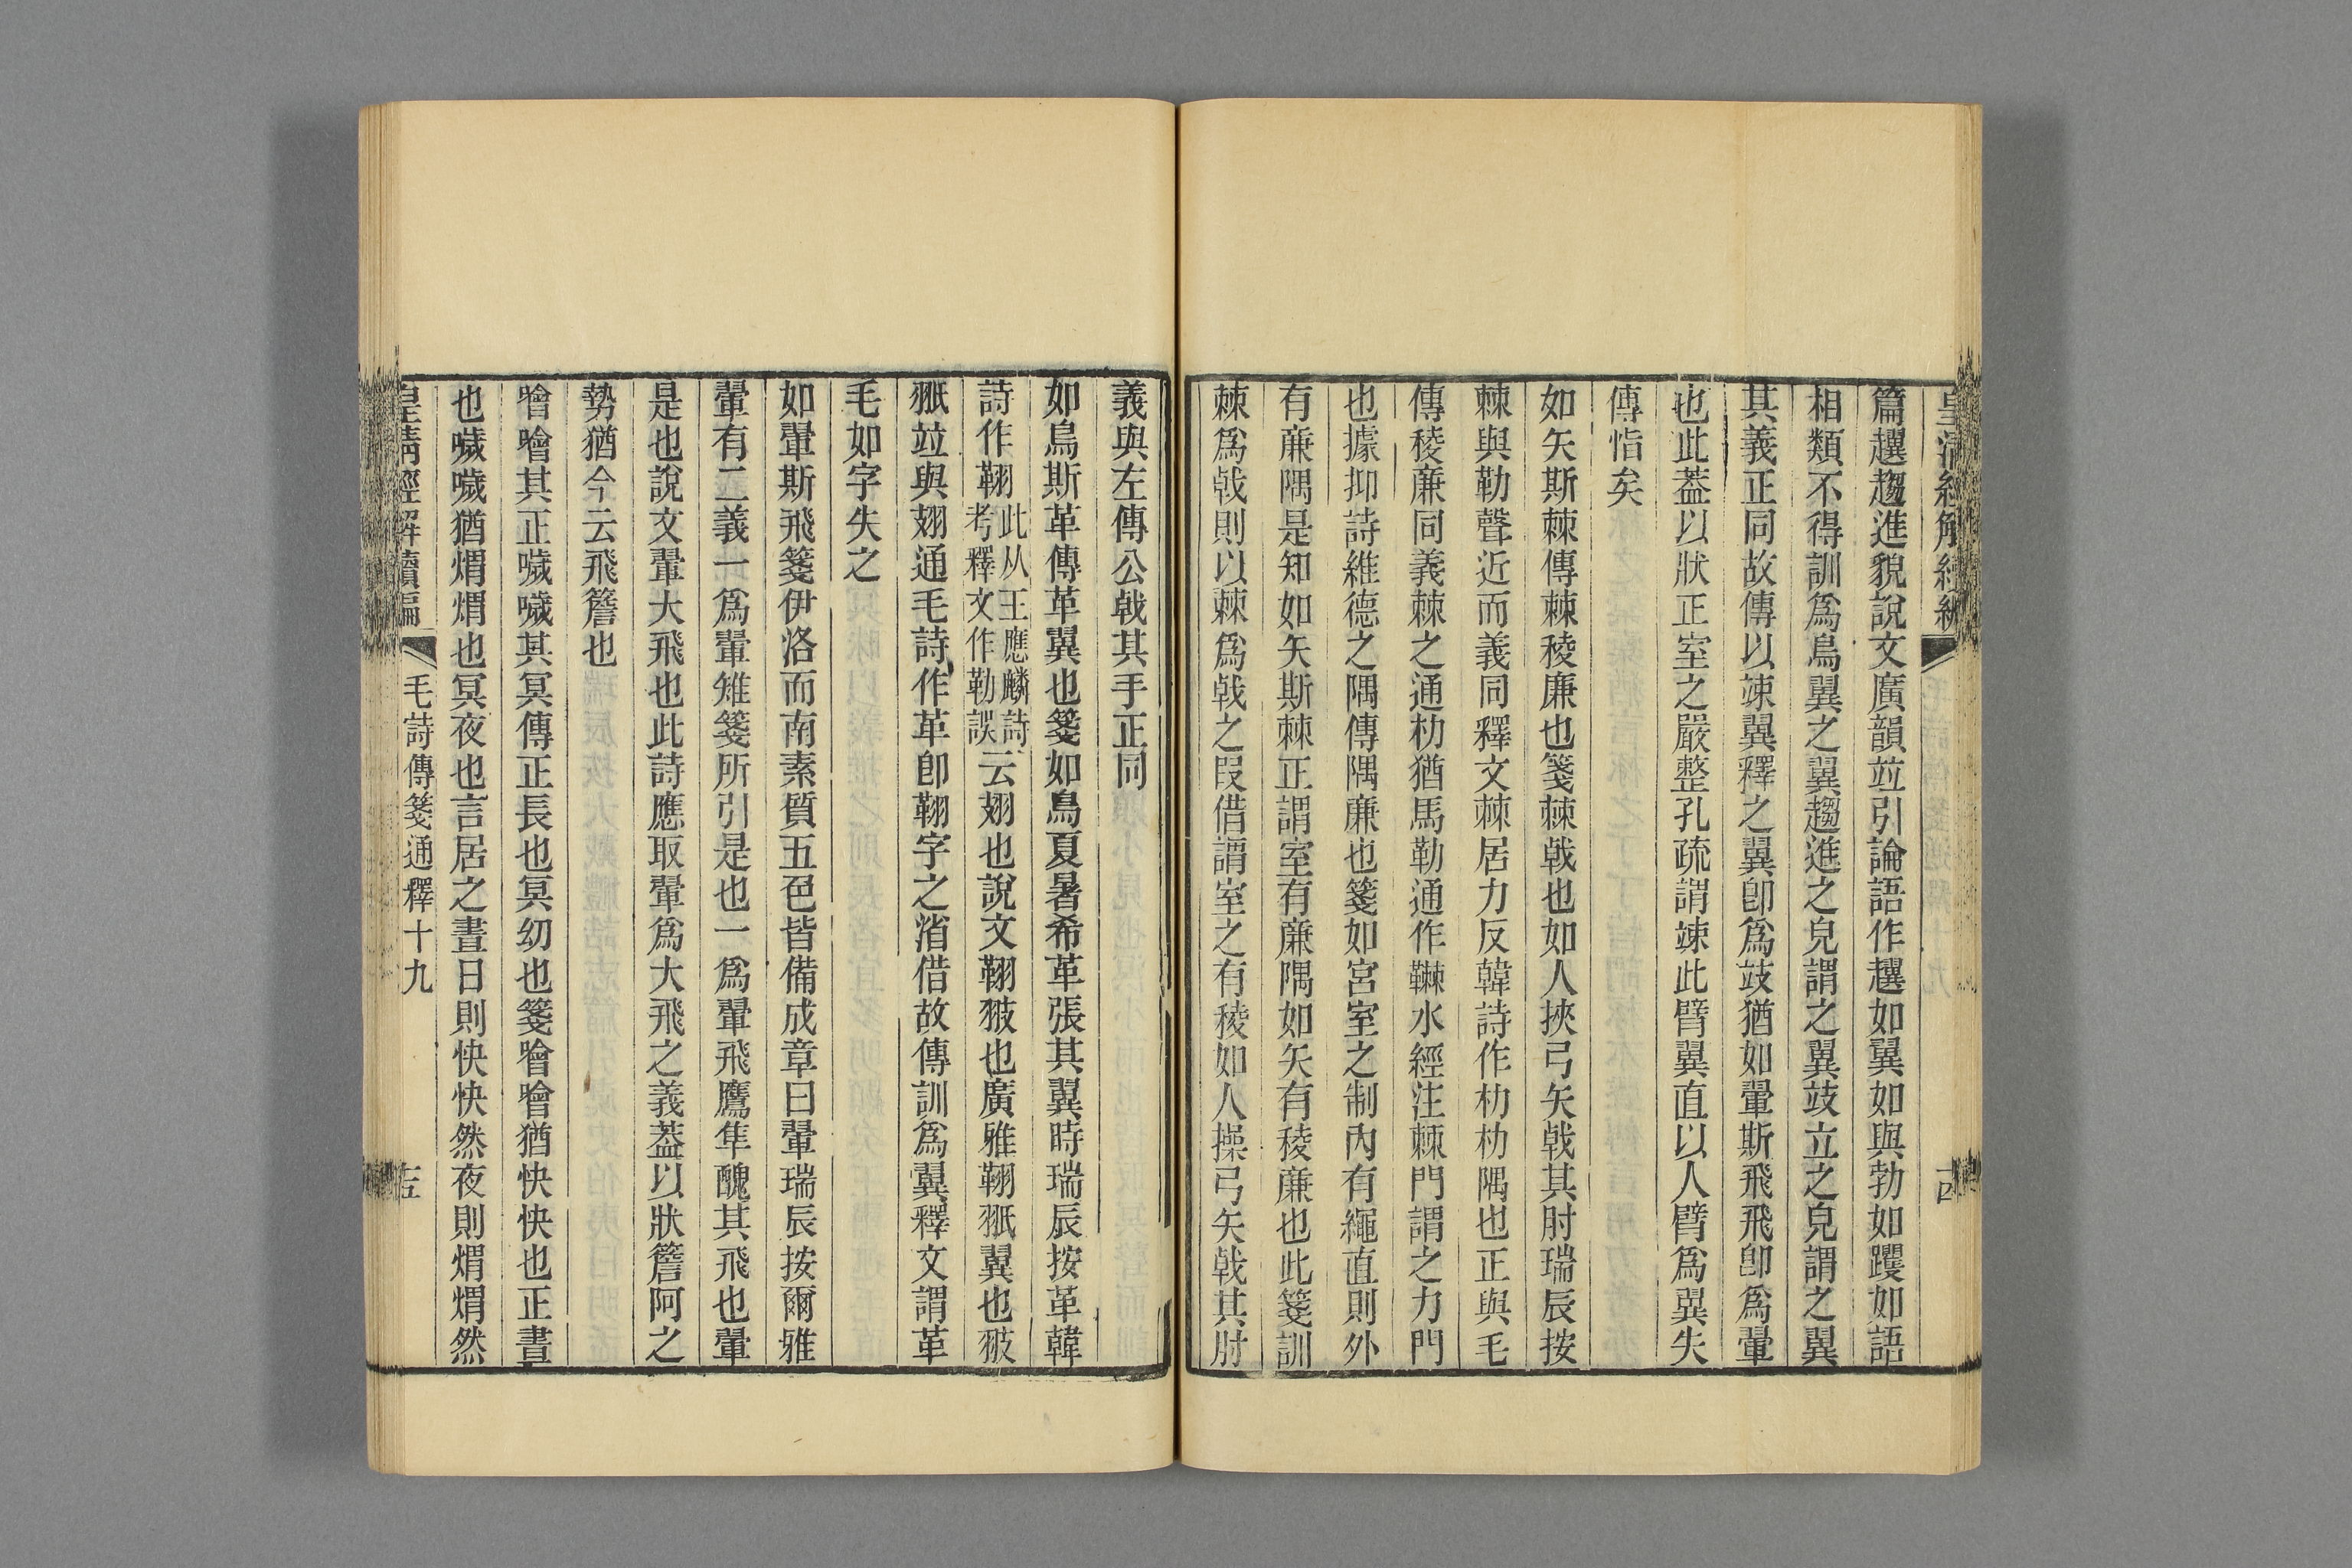 皇清經解續編
篇趩趨進貌說文廣韻竝引論語作趩如翼如與勃如躩如語
相類不得訓爲鳥翼之翼趨進之皃謂之翼竝立之皃謂之翼
其義正同故傳以竦翼釋之翼卽爲竝猶如翬斯飛飛卽爲翬
也此葢以狀正室之嚴整孔疏謂竦此臂翼直以人臂爲翼失
傳恉矣
如矢斯棘傳棘稜廉也箋棘戟也如人挾弓矢戟其肘瑞辰按
棘與勒聲近而義同釋文棘居力反韓詩作朸朸隅也正與毛
傳稜廉同義棘之通朸猶馬勒通作𩍷水經注棘門謂之力門
也據抑詩維德之隅傳隅廉也箋如宮室之制內有繩直則外
有廉隅是知如矢斯棘正謂室有廉隅如矢有稜廉也此箋訓
棘爲戟則以棘爲戟之叚借謂室之有稜如人操弓矢戟其肘
義與左傳公戟其手正同
如鳥斯革傳革翼也箋如鳥夏暑希革張其翼時瑞辰按革韓
詩作䩗此从王應麟詩考釋文作勒誤云翅也說文䩗翍也廣雅䩗翄翼也翍
翄竝與翅通毛詩作革卽䩗字之消借故傳訓爲翼釋文謂革
毛如字失之
如翬斯飛箋伊洛而南素質五色皆備成章曰翬瑞辰按爾雅
翬有二義一爲翬雉箋所引是也一爲翬飛鷹隼醜其飛也翬
是也說文翬大飛也此詩應取翬爲大飛之義葢以狀簷阿之
勢猶今云飛簷也
噲噲其正噦噦其冥傳正長也冥幼也箋噲噲猶快快也正晝
也噦噦猶煟煟也冥夜也言居之晝日則快快然夜則煟煟然
皇淸經解續編
毛詩傳箋通釋十九